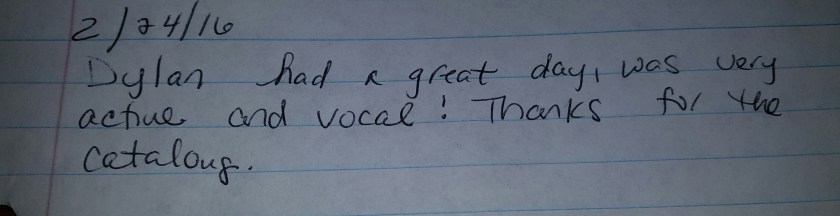 2/24/16
Dylan had a great day, was very
active and vocal! Thanks for the
Cataloug.